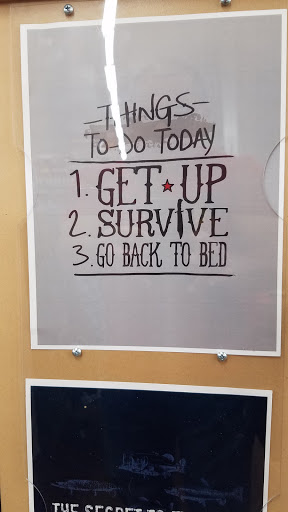 THINGS
TO-DO TODAY
1. GET UP
2. SURVIVE
3. GO BACK TO BED
THE SECRET TO